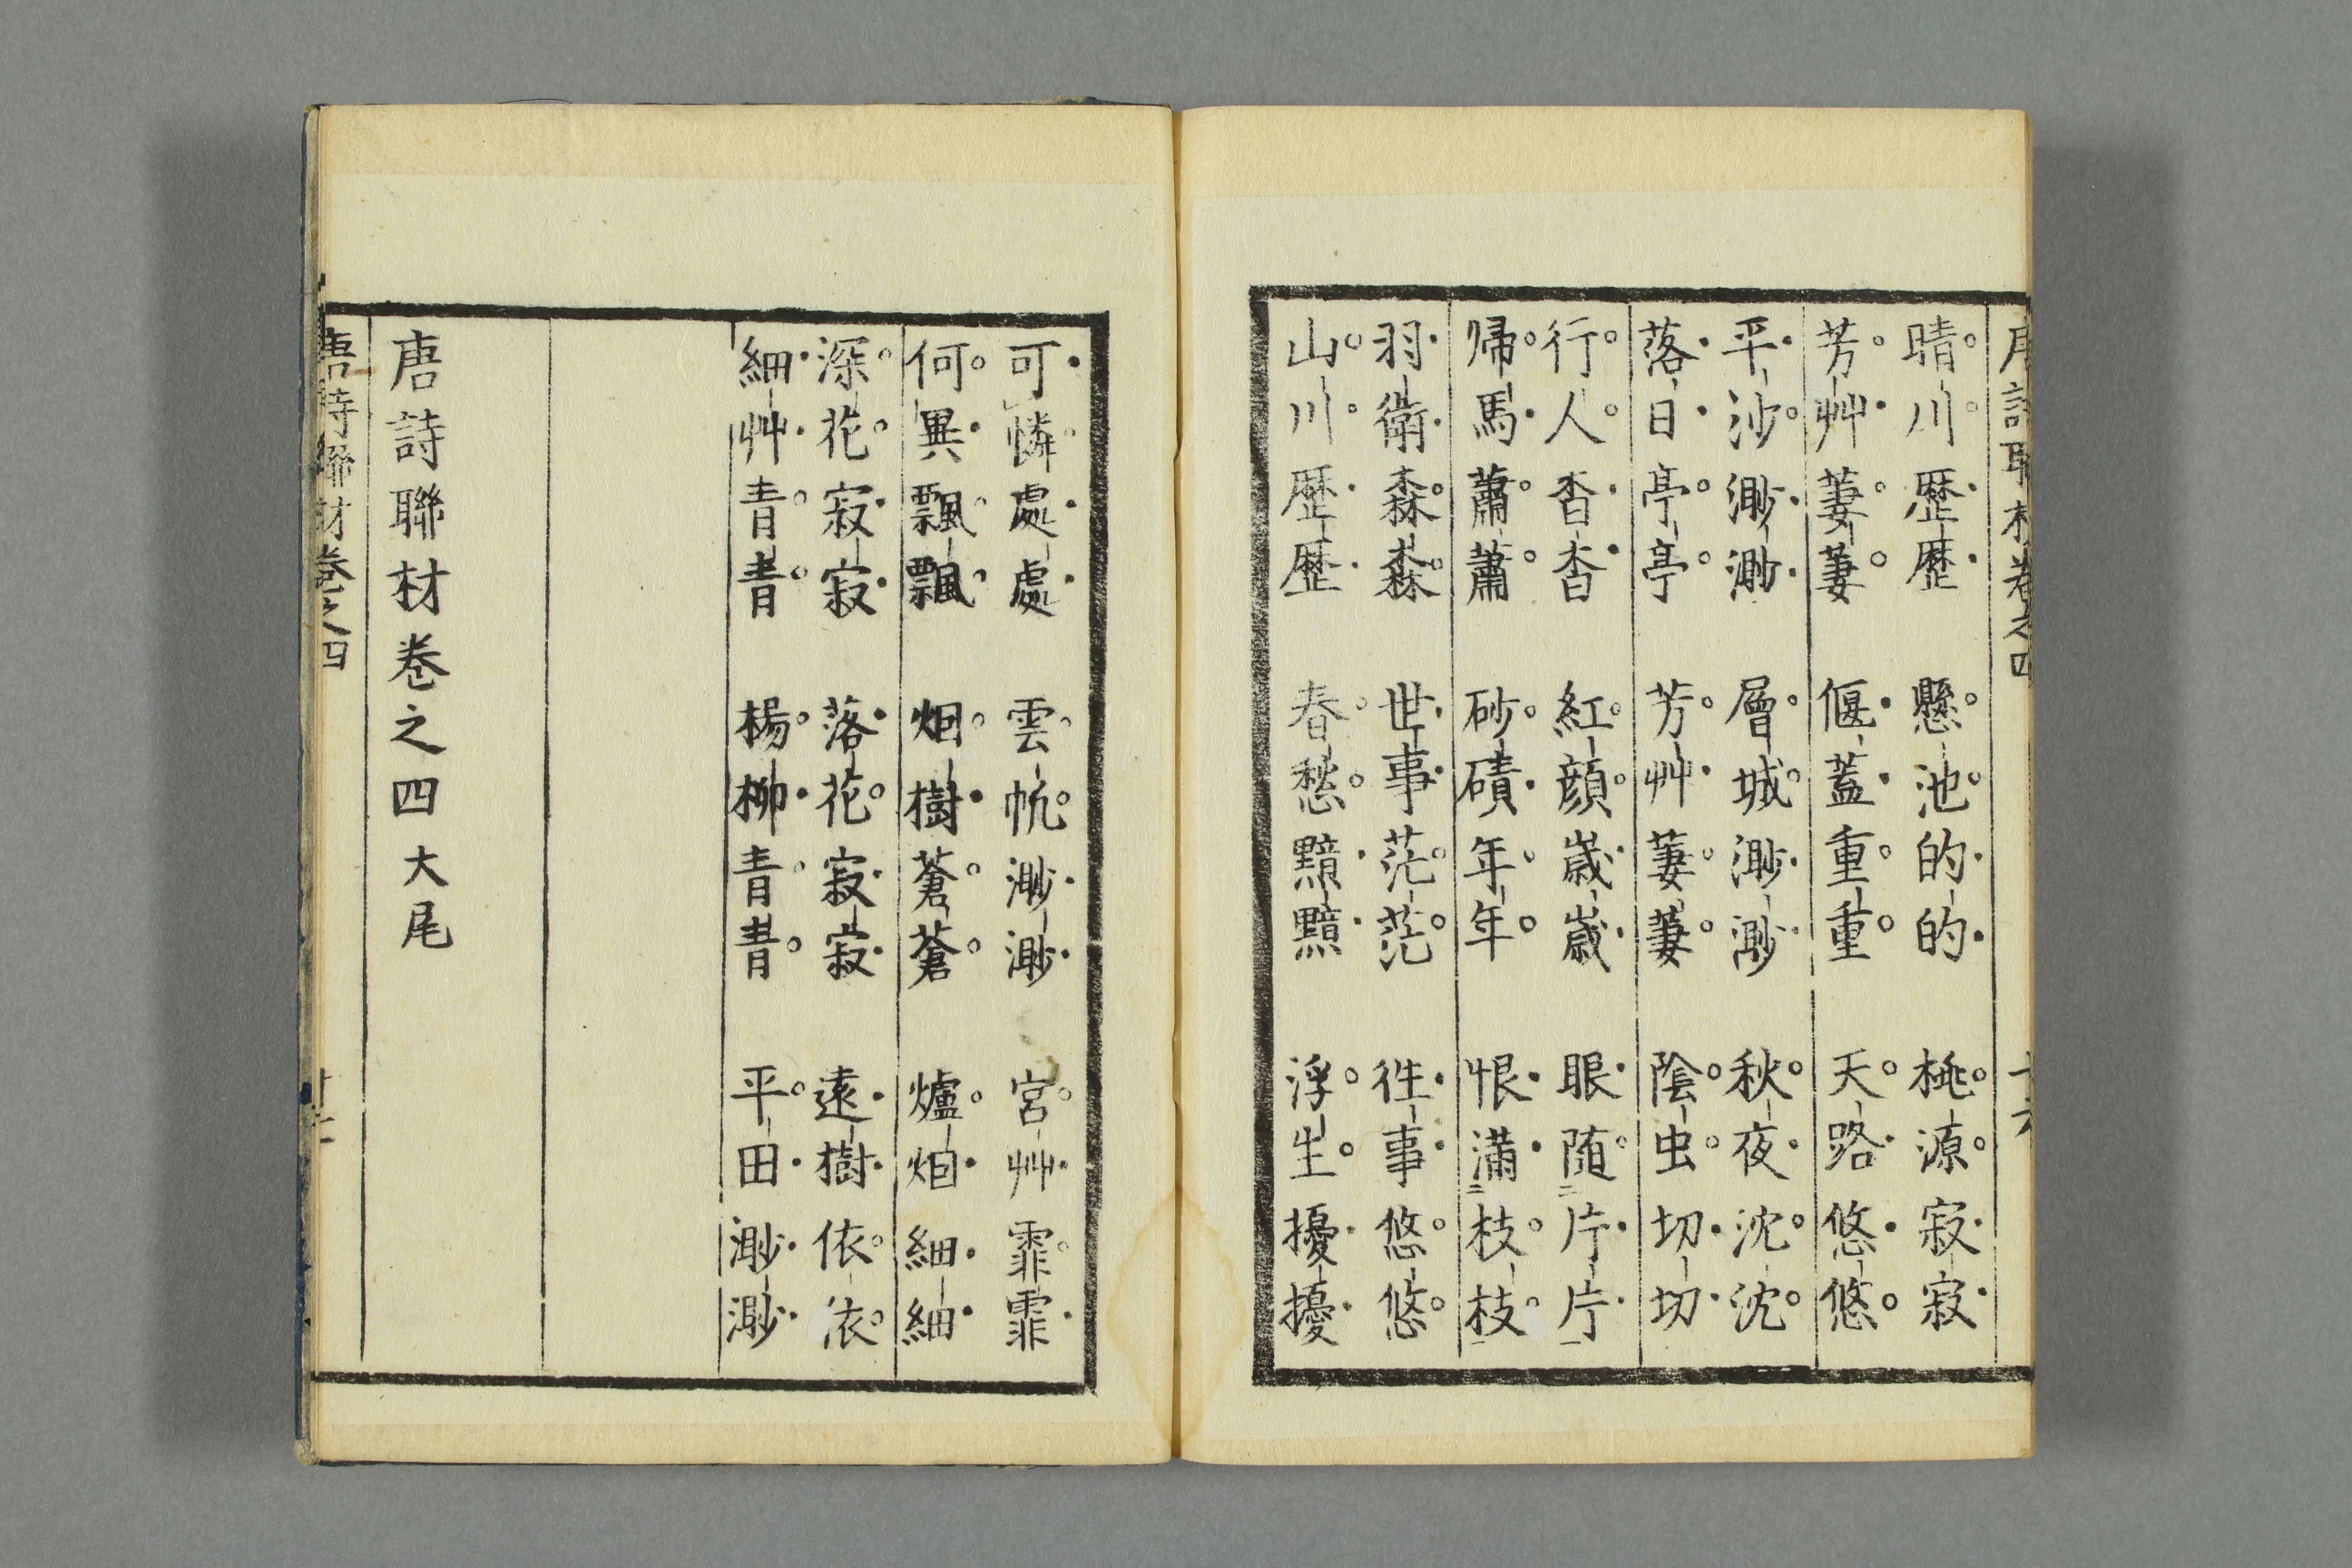 晴川歴歴 懸池的的 桃源寂寂
芳艸萋萋 偃蓋重重 天路悠悠
平沙渺渺 層城渺渺 秋夜沈沈
落日亭亭 芳艸萋萋 陰虫切切
行人杳杳 紅顔歳歳 眼随二片片一
帰馬蕭蕭 砂磧年年 恨満二枝枝一
羽衛森森 世事茫茫 往事悠悠
山川歴歴 春愁黯黯 浮生擾擾
可憐處處 雲帆渺渺 宮艸霏霏
何異飄飄 烟樹蒼蒼 爐烟細細
深花寂寂 落花寂寂 遠樹依依
細艸青青 楊柳青青 平田渺渺
唐詩聯材巻之四大尾
唐詩聯材巻之四